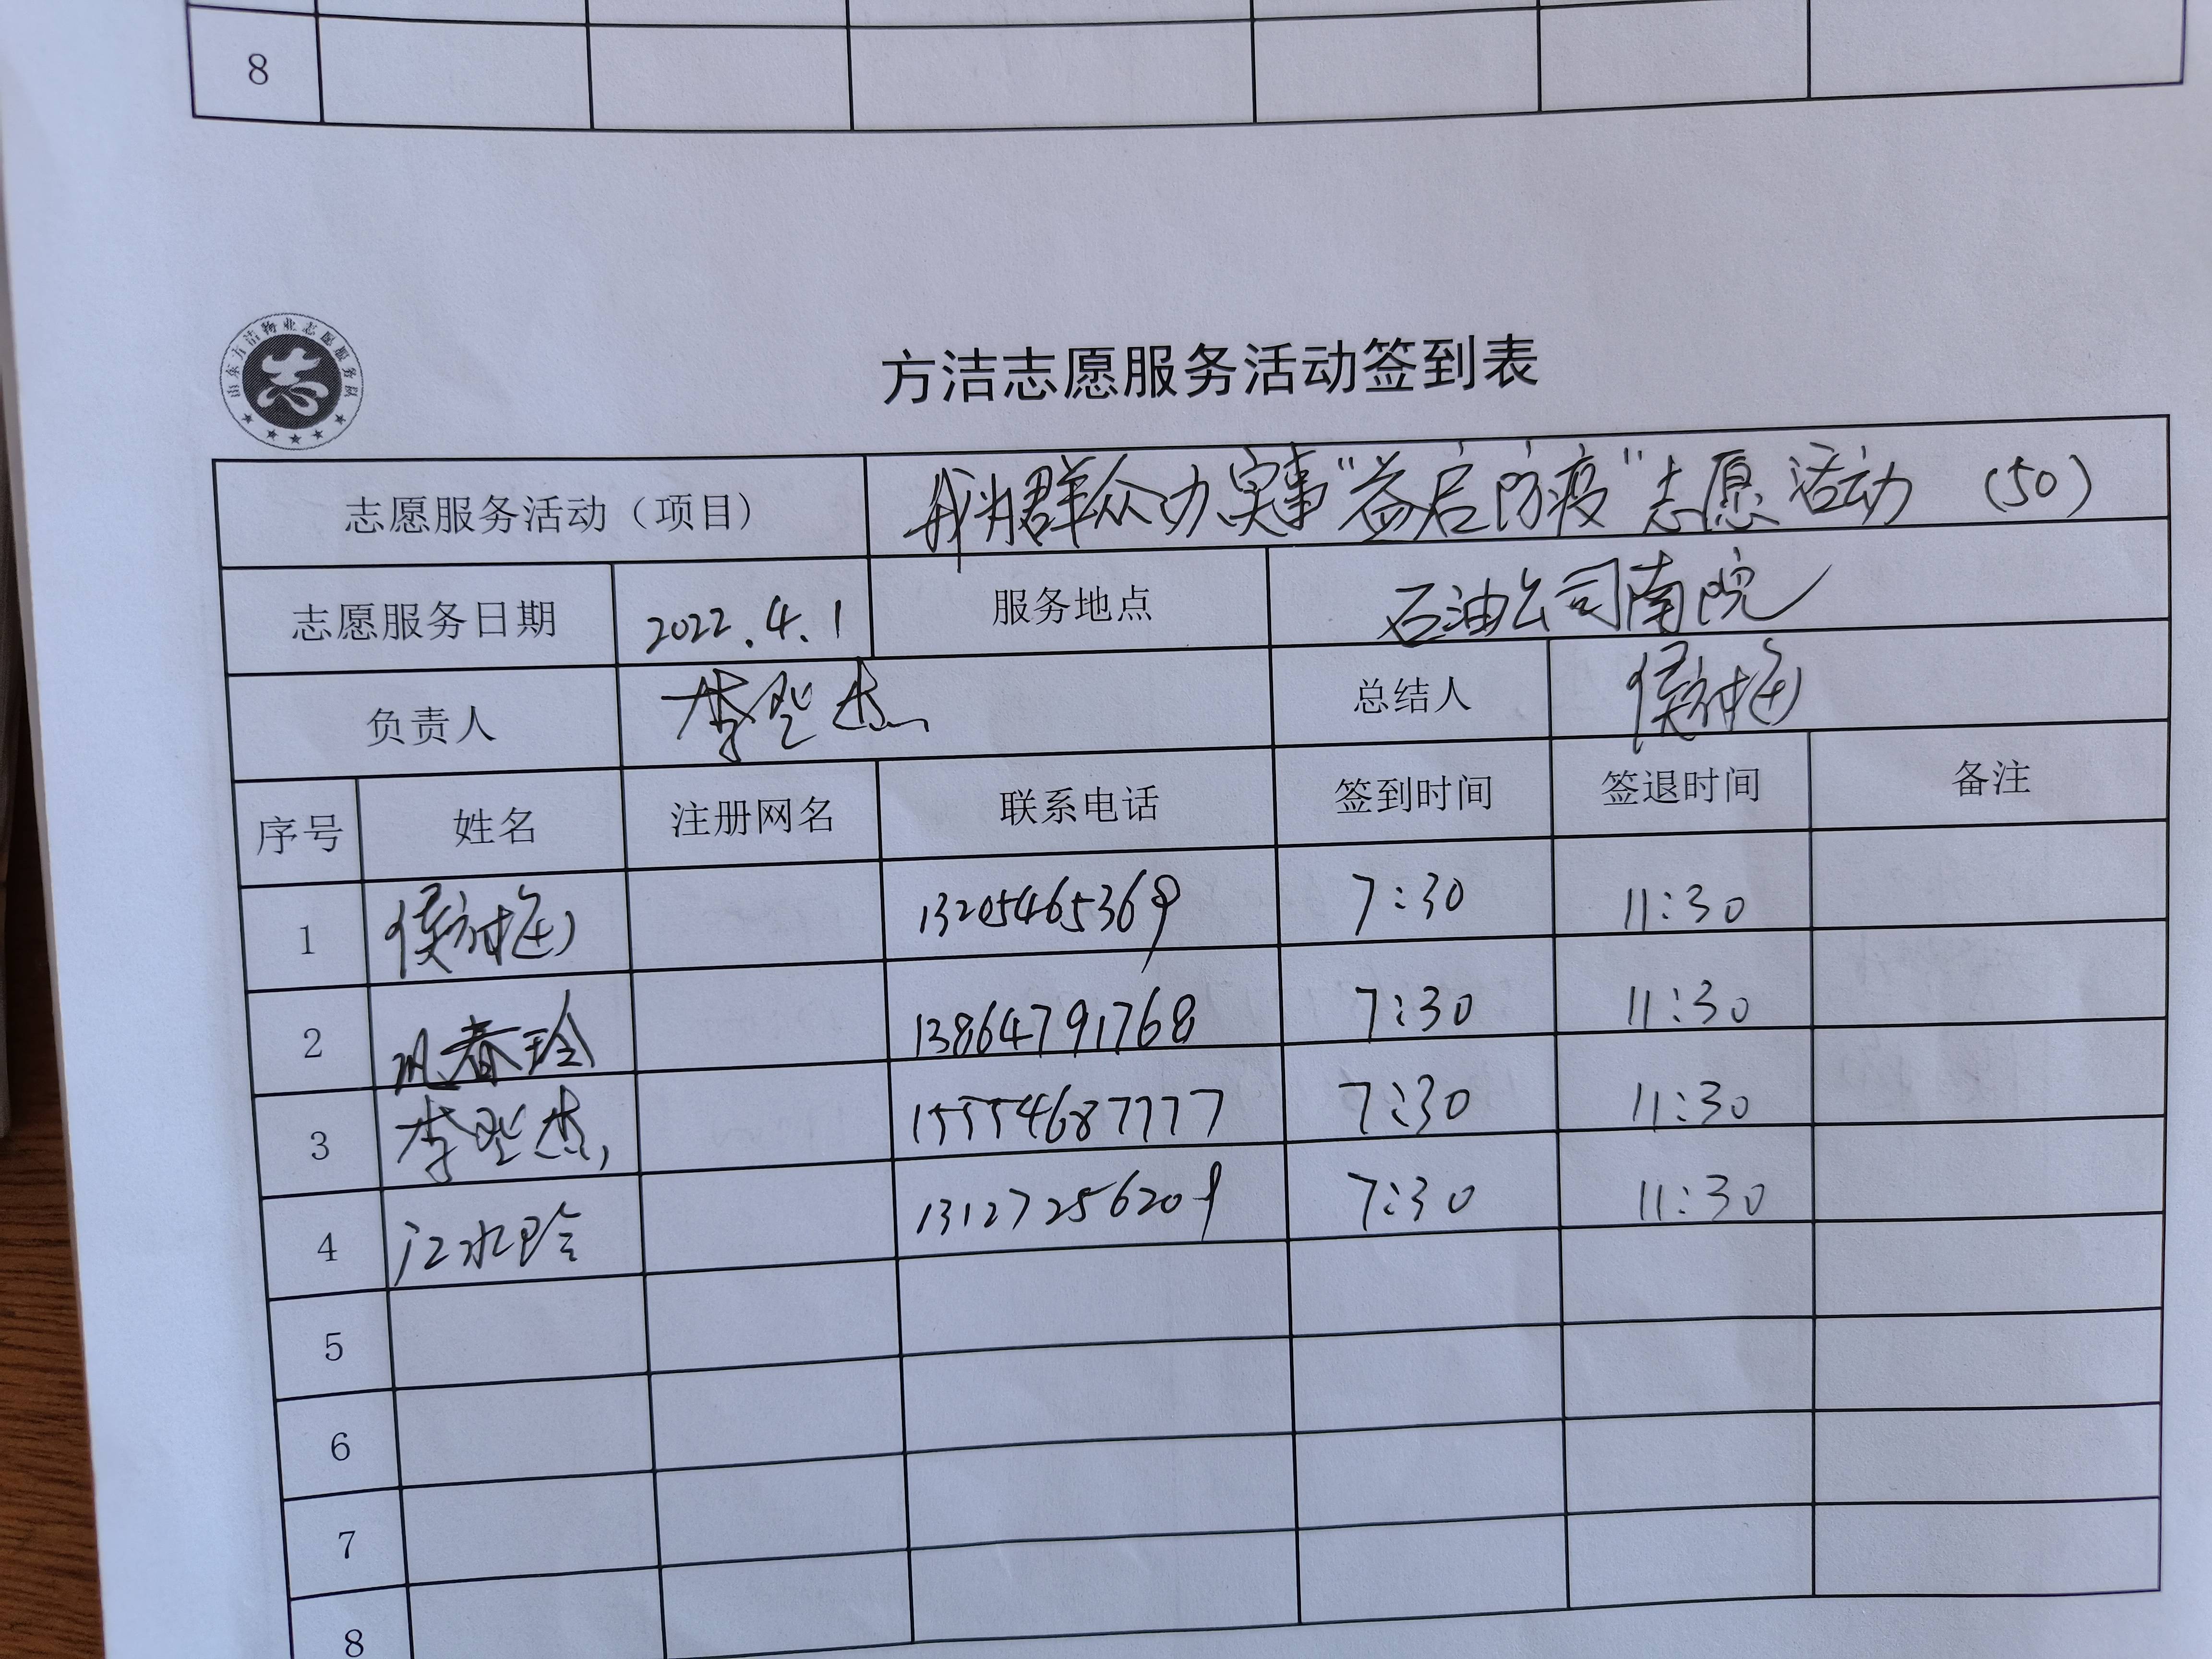 8
山东方洁物业志愿服务队
方洁志愿服务活动签到表
志愿服务活动（项目） 我为群众办实事“益启防疫”志愿活动 (50)
志愿服务日期 2022.4.1 服务地点 石油公司南院
负责人 李登杰 总结人 侯树梅
序号 姓名 注册网名 联系电话 签到时间 签退时间 备注
1 侯树梅 13205465369 7:30 11:30
2 春玲 13864791768 7:30 11:30
3 李登杰 15554687777 7:30 11:30
4 江水玲 13127256209 7:30 11:30
5
6
7
8